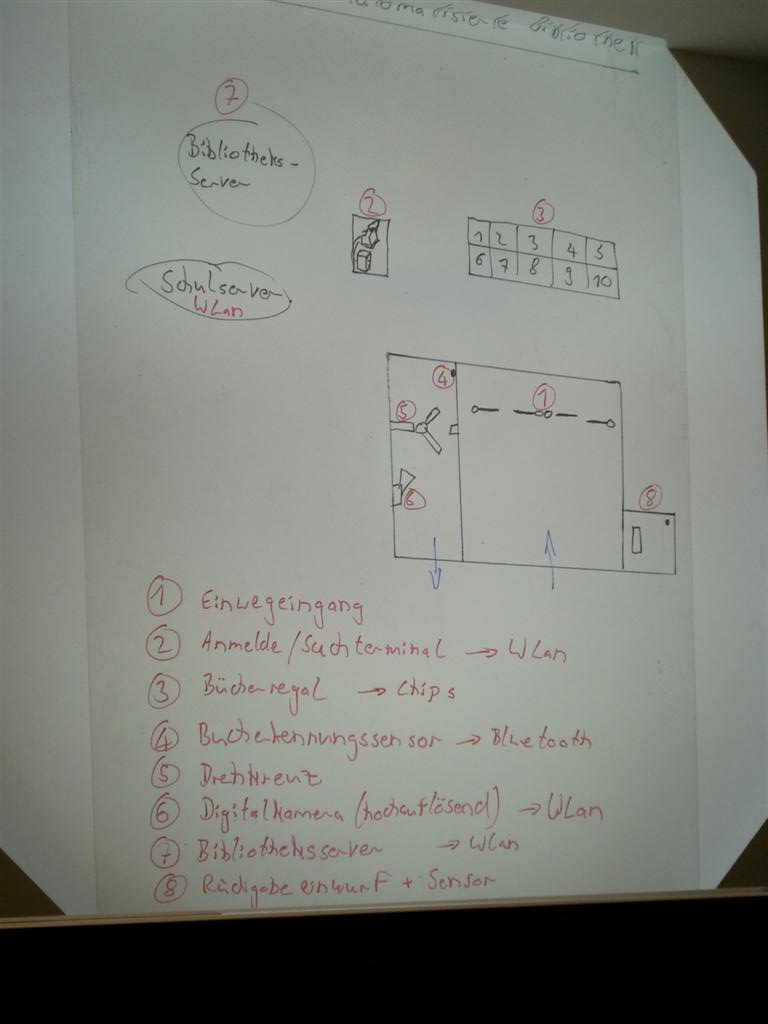 Automatisierte Bibliothek
7
Bibliotheks-
Server
2
3
1 2 3 4 5
6 7 8 9 10
Schulserver
WLan
4
1
5
6
8
1 Einwegeingang
2 Anmelde/Suchterminal → WLan
3 Bücherregal → Chips
4 Bucherkennungssensor → Bluetooth
5 Drehkreuz
6 Digitalkamera (hochauflösend) → WLan
7 Bibliotheksserver → WLan
8 Rückgabeeinwurf + Sensor